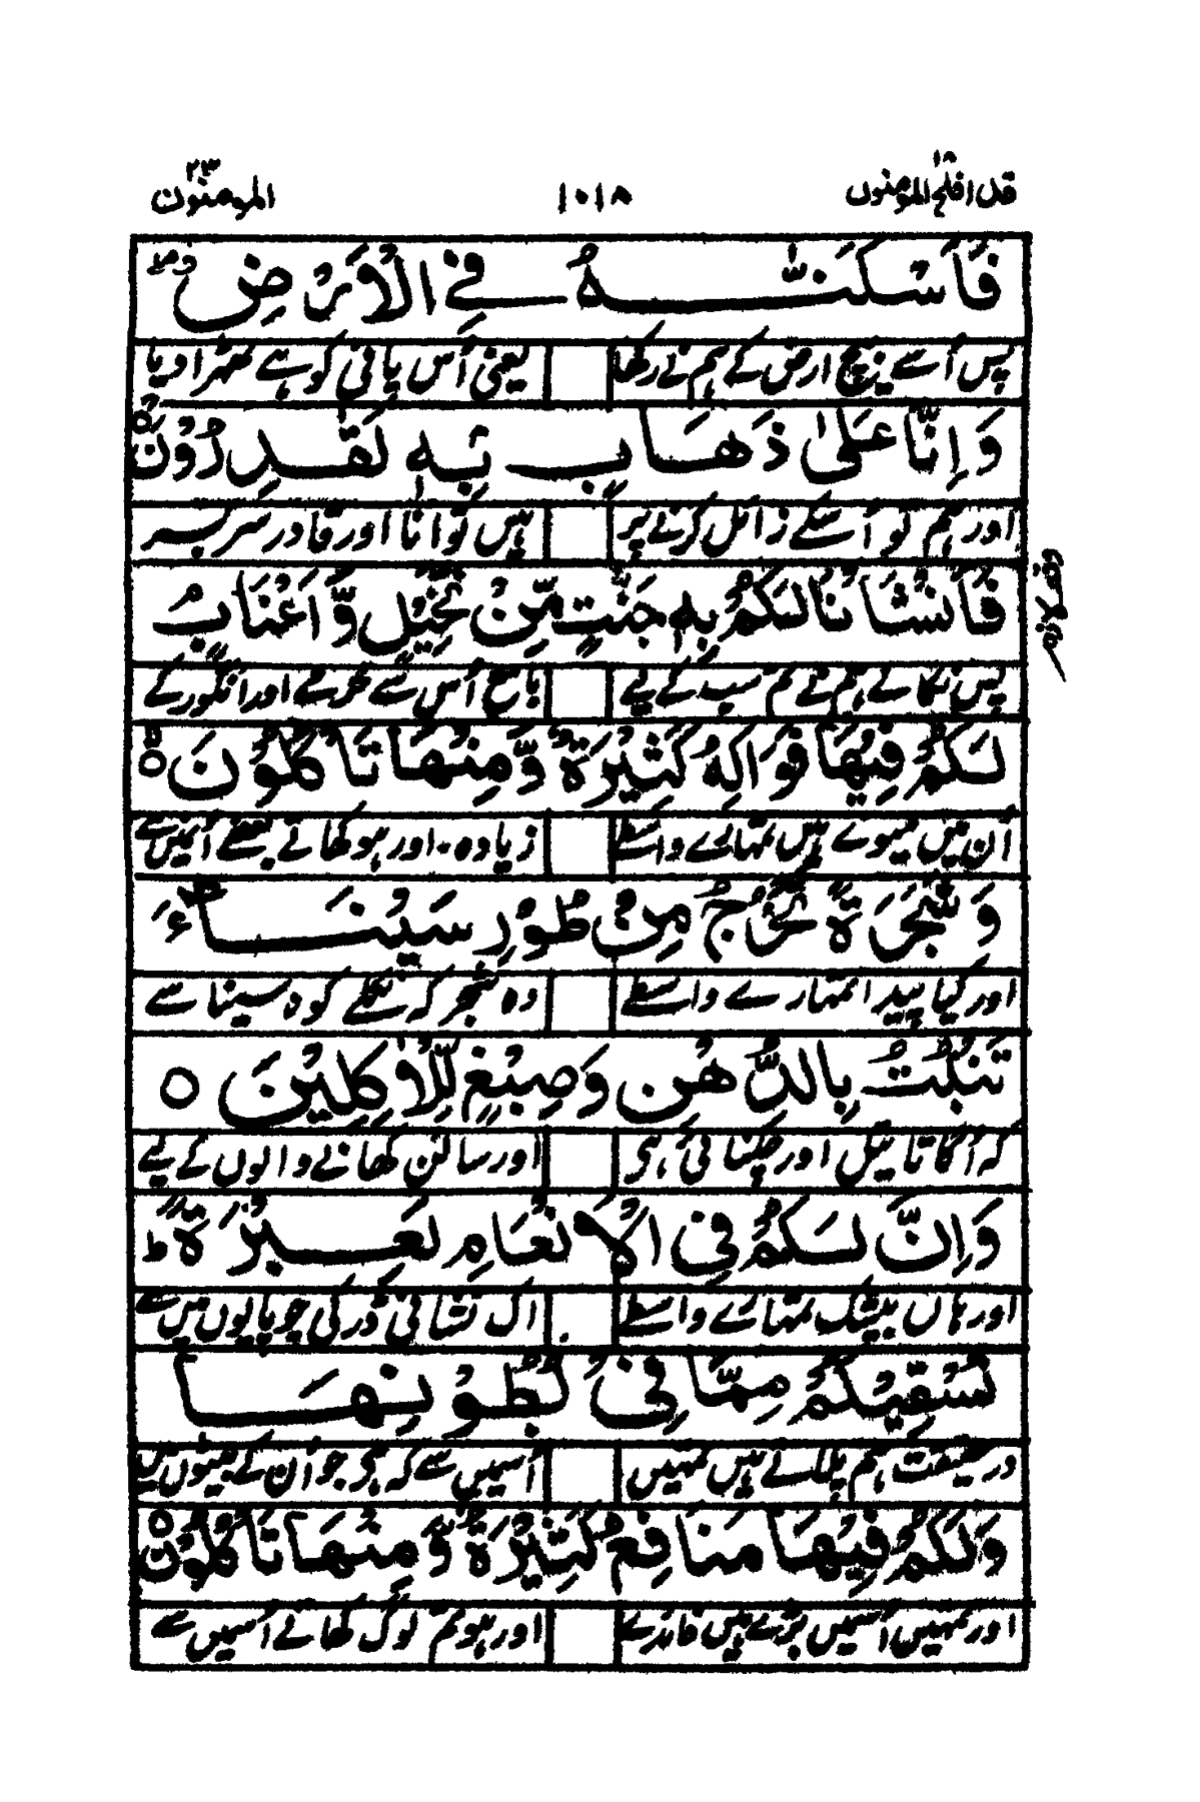 قد افلح المومنون ۱۸ ۱۰۱۸ المومنون ۲۳
فَاَسْكَنّٰهُ فِي الْاَرْضِ
پس اُسے بیچ ارض کے ہم نے رکھا یعنی اُس پانی کو ہے ٹھرا دیا
وَاِنَّا عَلٰى ذَهَابٍۭ بِهٖ لَقٰدِرُوْنَ
اور ہم تو اُسکے زائل کرنے پر ہیں توانا اور قادر سر بسر
فَاَنْشَاْنَا لَكُمْ بِهٖ جَنّٰتٍ مِّنْ نَّخِيْلٍ وَّاَعْنَابٍ
پس نکالے ہم نے تم سب کے لیے باغ اُس سے کھجور کے اور انگور کے
لَكُمْ فِيْهَا فَوَاكِهُ كَثِيْرَةٌ وَّمِنْهَا تَاْكُلُوْنَ
اُن میں میوے ہیں تمہارے واسطے زیادہ اور ہو کھاتے بعضے اُنمیں سے
وَشَجَرَةً تَخْرُجُ مِنْ طُوْرِ سَيْنَآءَ
اور کیا پیدا تمہارے واسطے وہ شجر کہ نکلے کوہ سینا سے
تَنْۢبُتُ بِالدُّهْنِ وَصِبْغٍ لِّلْاٰكِلِيْنَ
کہ اُگاتا تیل اور چکنائی ہی اور سالن کھانے والوں کے لیے
وَاِنَّ لَكُمْ فِي الْاَنْعَامِ لَعِبْرَةً ط
اور ہاں بیشک تمہارے واسطے اک نشانی ڈر کی چوپایوں میں سے
نُسْقِيْكُمْ مِّمَّا فِيْ بُطُوْنِهَا
در حقیقت ہم پلاتے ہیں تمہیں اُسمیں سے کہ ہی جو اُن کے پیٹوں میں
وَلَكُمْ فِيْهَا مَنَافِعُ كَثِيْرَةٌ وَّمِنْهَا تَاْكُلُوْنَ
اور تمہیں اُسمیں بڑے ہیں فائدے اور ہو تم لوگ کھاتے اُسمیں سے